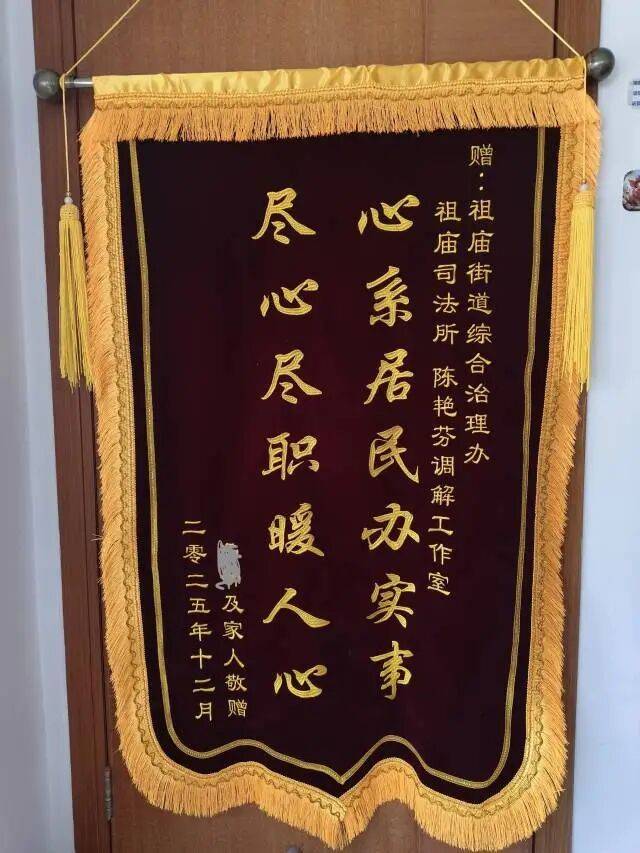 赠：祖庙街道综合治理办
祖庙司法所 陈艳芬调解工作室
心系居民办实事
尽心尽职暖人心
及家人敬赠
二零二五年十二月